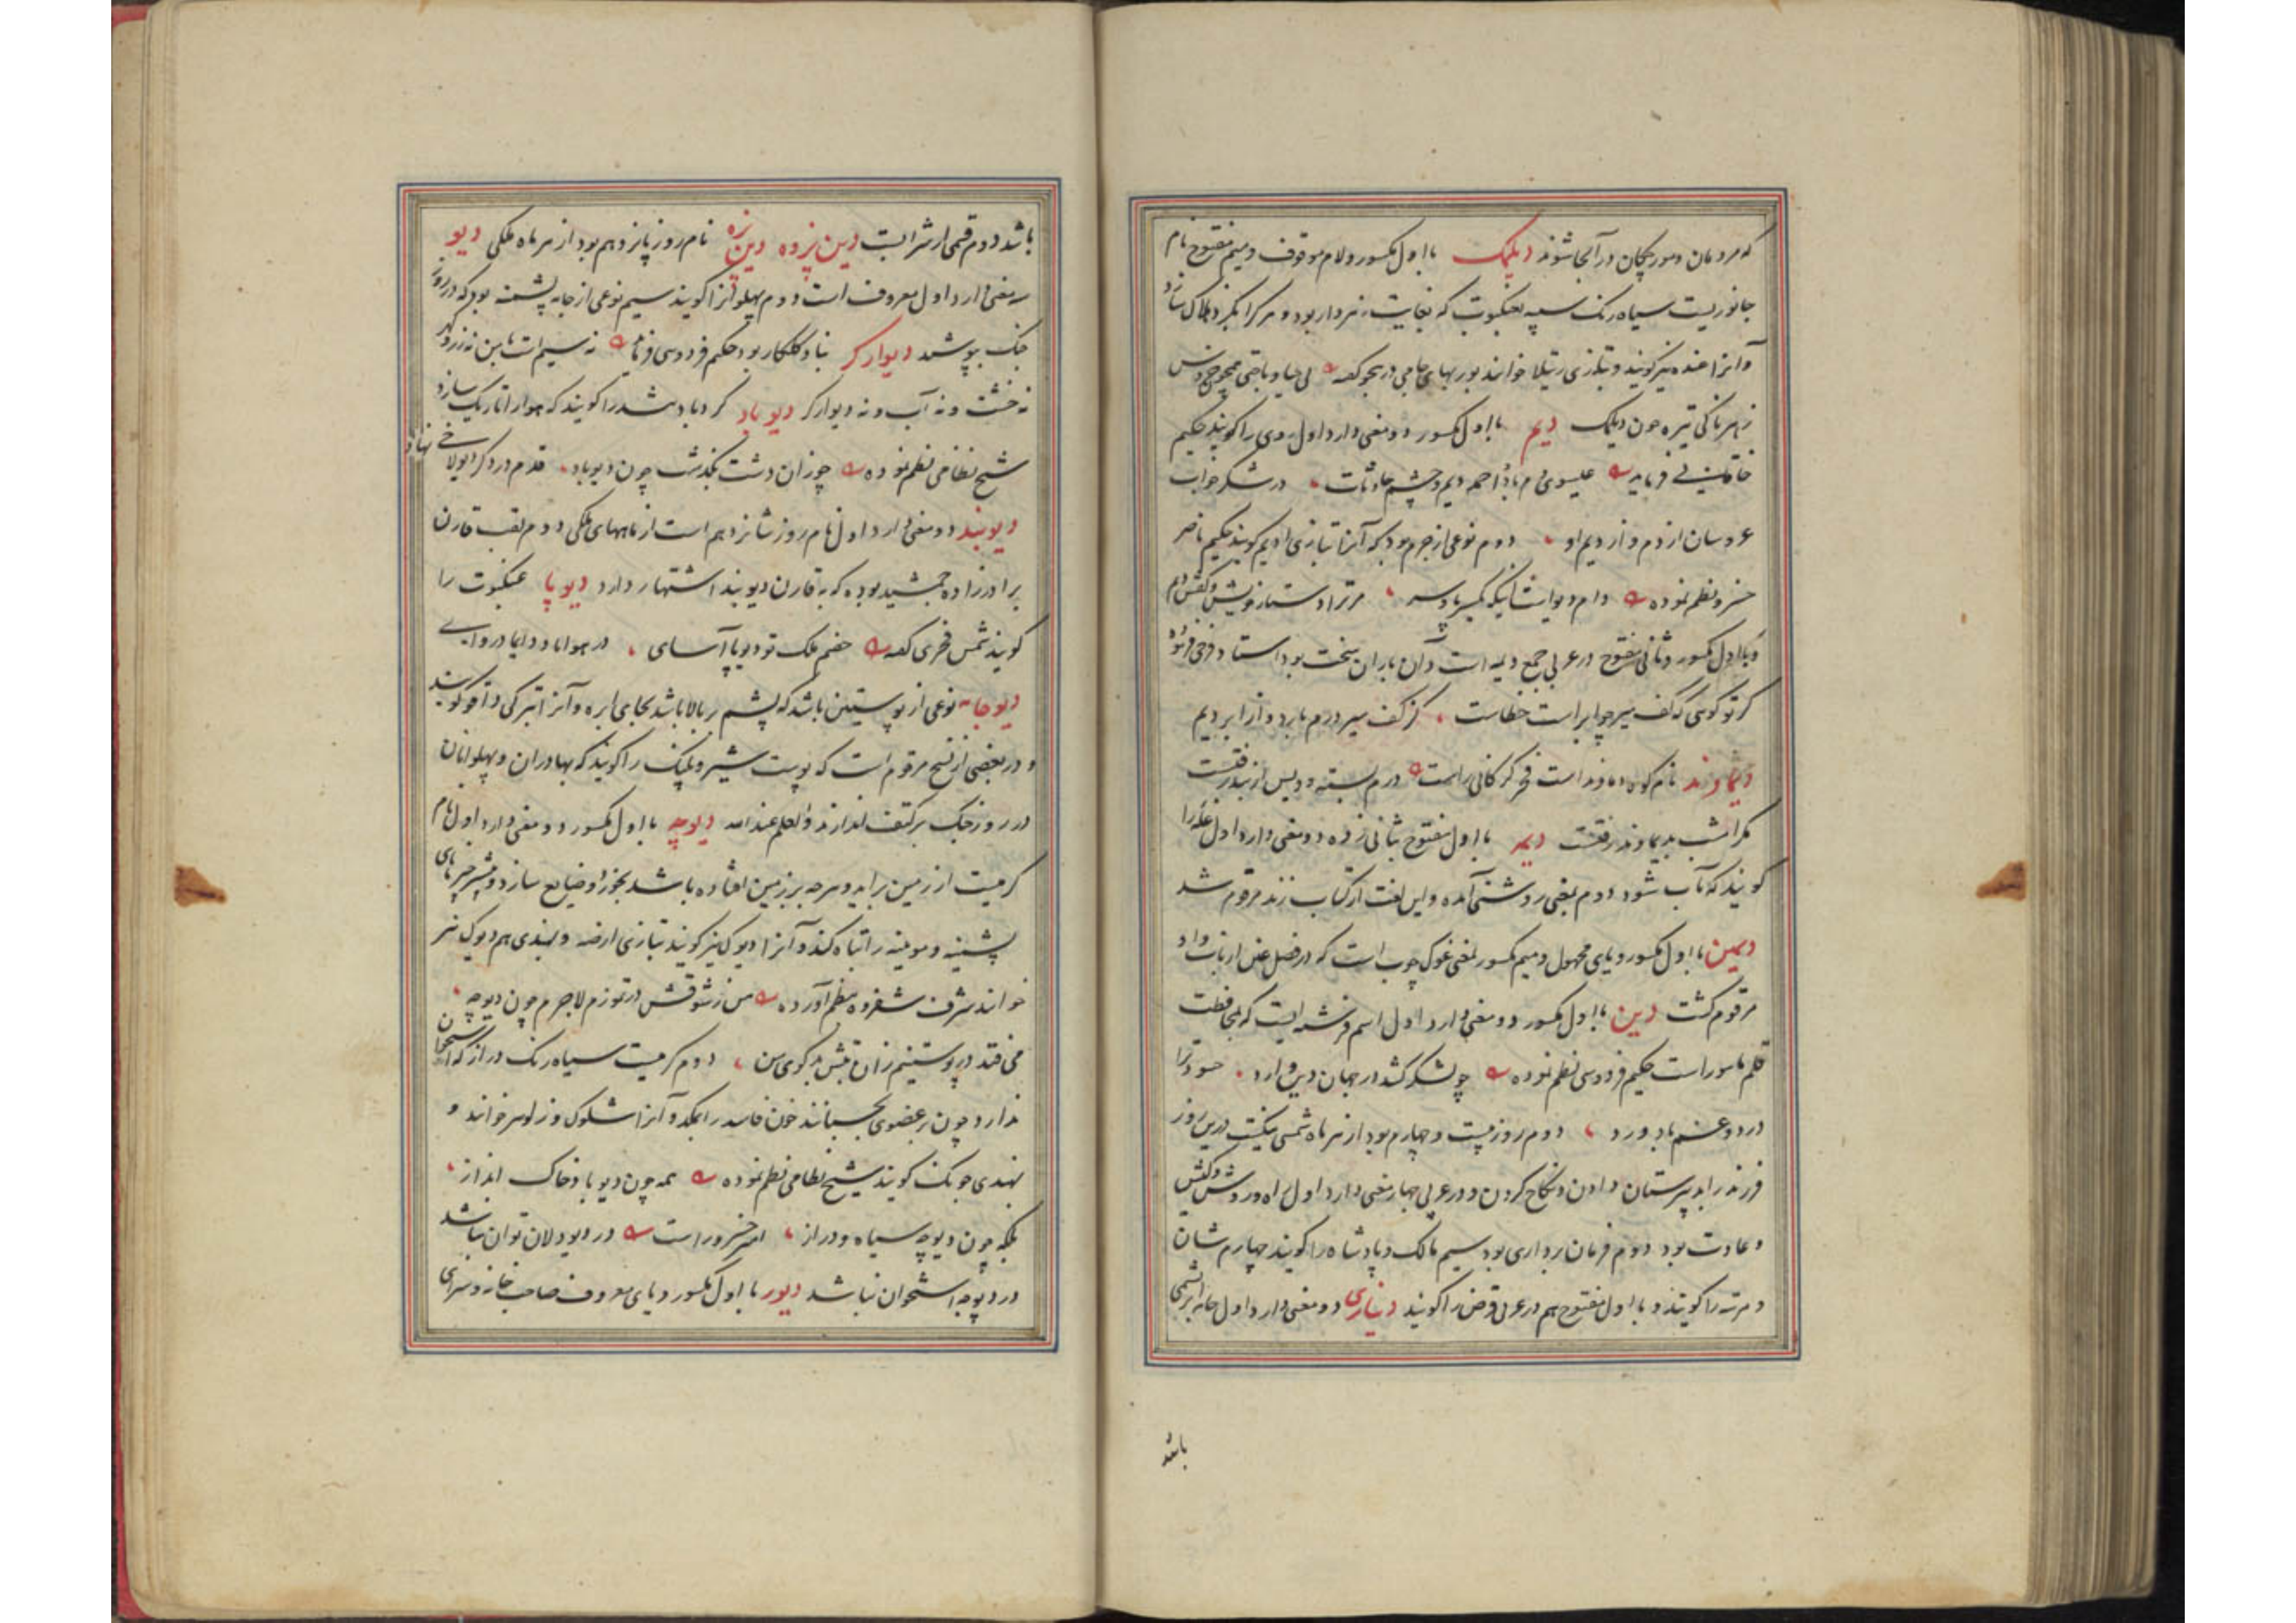 که مردمان و مورچگان در آنجا شوند دیلمک با اول مکسور و لام موقوف و میم مفتوح نام
جانوریست سیاه رنک شبیه بعنکبوت که بغایت زهردار بود و هرکرا بگزد هلاک سازد
و آنرا غنده نیز گویند و بتازی رتیلا خوانند پوربهای جامی در هجو گفته
زهرناکی تیره چون دیلمک دیم با اول مکسور دو معنی دارد اول روی را گویند حکیم
خاقانی فرماید عیسوی دم باد احمد دیم و چشم حادثات در شکر خواب
عروسان از دم و از دیم او دوم نوعی از چرم بود که آنرا بتازی ادیم گویند حکیم ناصر
خسرو نظم نموده مر ترا دستار خویش و کفش دیم
و با اول مکسور و ثانی مفتوح در عربی جمع دیمه است و آن باران سخت بود استاد فرخی فرموده
گر تو گوئی که کف میر چو ابر است خطاست کز کف میر درم بارد و از ابر دیم
دیماوند نام کوه دماوند است فخر گرگانی راست
مکر امشب بدیماوند رفتست دیمه با اول مفتوح بثانی زده دو معنی دارد اول غله را
گویند که بآب شود دوم بمعنی روشنی آمده و این لغت از کتاب زند مرقوم شد
دیمین با اول مکسور و یای مجهول و میم مکسور بمعنی غوک چوب است که در فصل غین از باب واو
مرقوم گشت دین با اول مکسور دو معنی دارد اول اسم فرشته ایست که بمحافظت
قلم مامور است حکیم فردوسی نظم نموده چو لشکر کشد در جهان دین دارد
درد و غم باد ورد دوم روز بیست و چهارم بود از هر ماه شمسی نیکست درین روز
فرزند را بدبیرستان دادن و نکاح کردن و در عربی چهار معنی دارد اول راه و روش و کیش
و عادت بود دوم فرمان برداری بود سیم مالک و پادشاه را گویند چهارم شان
و مرتبه را گویند و با اول مفتوح هم در عربی قرض را گویند دیناری دو معنی دارد اول جامه ابریشمی
باشد
باشد دوم قسمی از شرابست دین پژوه دین پزه نام روز پانزدهم بود از هر ماه ملکی دیو
سه معنی دارد اول معروف است دوم پهلوانرا گویند سیم نوعی از جامه پشمینه بود که در روز
جنک بپوشند دیوارکر بنا و گلکار بود حکیم فردوسی فرماید نه سیم است با من نه زر و گهر
نه خشت و نه آب و نه دیوارکر دیو باد گردباد تند را گویند که هوا را تاریک سازد
شیخ نظامی نظم نموده چو زان دشت بگذشت چون دیوباد قدم در دگر دیولاخی نهاد
دیوبند دو معنی دارد اول نام روز شانزدهم است از ماههای ملکی دوم لقب قارن
برادرزاده جمشید بوده که به قارن دیوبند اشتهار دارد دیوپا عنکبوت را
گویند شمس فخری گفته خصم ملک تو دیوپا آسای در هوا باد دایما دروای
دیوجامه نوعی از پوستین باشد که پشم بر بالا باشد بجای ابره و آنرا بترکی داقو گویند
و در بعضی از نسخ مرقوم است که پوست شیر و پلنک را گویند که بهادران و پهلوانان
در روز جنک بر کتف اندازند والعلم عند الله دیوچه با اول مکسور دو معنی دارد اول نام
کرمیست از زمین برآید و هرچه بر زمین افتاده باشد بخورد و ضایع سازد و بیشتر چیزهای
پشمینه و موینه را تباه کند و آنرا دیوک نیز گویند بتازی ارضه و بهندی هم دیوک نیز
خوانند شرف شفروه بنظم آورده من ز شوقش در تموزم لاجرم چون دیوچه
می فتد در پوستینم زان دوم کرمیست سیاه رنک دراز که استخوان
ندارد چون بر عضوی بچسبانند خون فاسد را بمکد و آنرا شلوک و زلو نیز خوانند و
بهندی جونک گویند شیخ نظامی نظم نموده نه چون دیو باد خاک انداز
بلکه چون دیوچه سیاه و دراز امیر خسرو راست در دیودلان توان نباشد
در دیوچه استخوان نباشد دیور با اول مکسور و یای معروف صاحب خانه و سرای